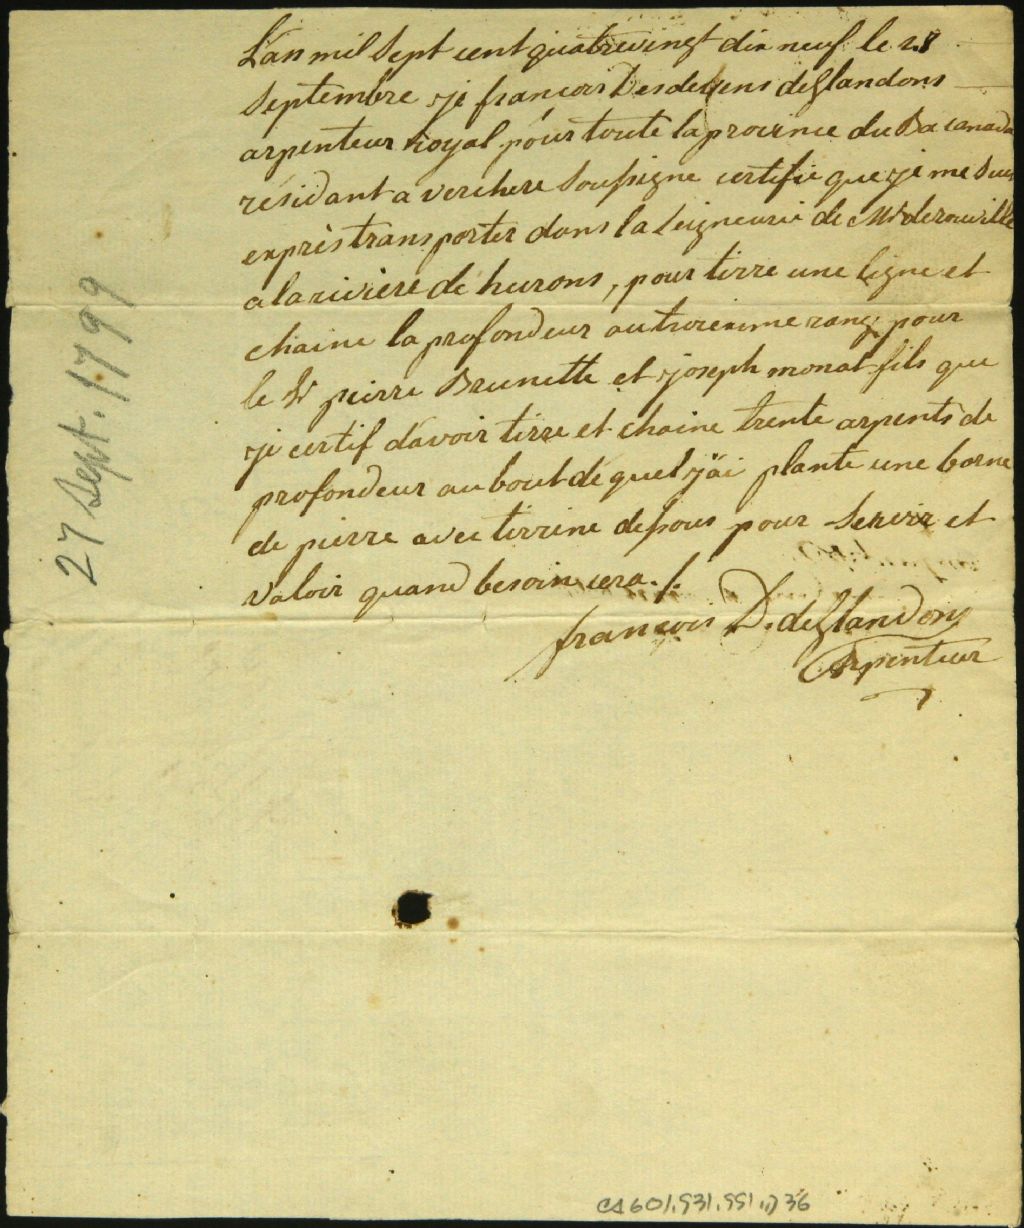 L'an mil sept cent quatrevingt dix neuf le 28
septembre je francois Desdevens deGlandons
arpenteur Royal pour toute la province du Ba canada
résidant a verchere soussigne certifie que je me suis
exprès transporter dans la Seigneurie de Mr derouville
a la riviere de hurons, pour tirre une ligne et
chaine la profondeur au troisieme rang pour
le Sr pierre Brunette et joseph monat fils que
je certif d'avoir tirre et chaine trente arpents de
profondeur au bout de quel j'ai plante une borne
de pierre avec tirrine dessous pour servir et
valoir quand besoin sera ./.
francois D. deGlandons
Arpenteur
27 Sept. 1799
CA601,S31,SS1,D36